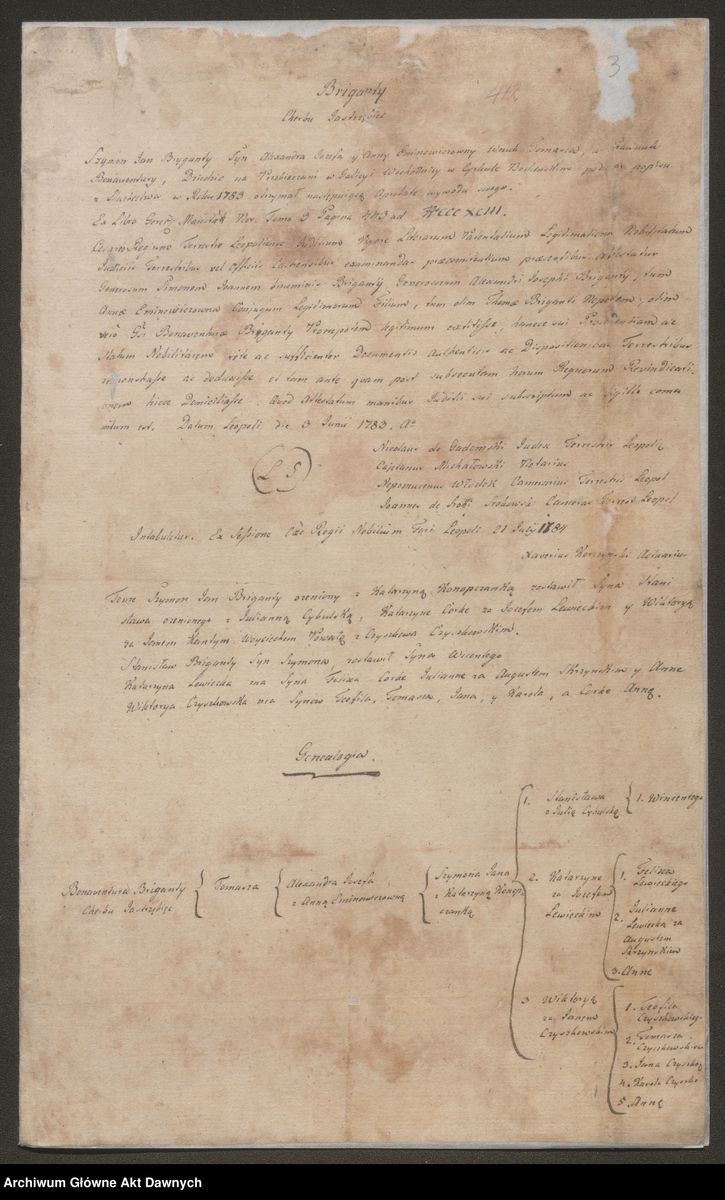 3
412
Briganty
Cherbu Jastrzębiec
Szymon Jan Bryganty Syn Alexandra Jozefa y Anny Eminowiczowny Wnuk Tomasza, a Prawnuk
Bonawentury, Dziedzic na Trzebieczani w Galicyi Wschodniey w Cyrkule Bocheńskim podczas popisu
z Szlachectwa w Roku 1783 otrzymał następuiącą Aprobatę wywodu swego.
Ex Libro Gener. Maiestat. Nov. Tomo 3 Pagina 443 ad
Cesareo Regium Terrestre Leopoliense Judicium Vigore Literarum Patentalium Legitimationes Nobilitatum
Judiciis Terrestribus vel Officiis Castrensibus examinandas præcommittentium præsentibus Attestatur
Generosum Simonem Joannem binominis Briganty Generosorum Alexandri Josephi Briganty, tum
Annæ Eminowiczowna Conjugum Legitimorum Filium, tum olim Thomæ Briganti Nepotem; olim
vero Gsi Bonaventuræ Briganty Pronepotem legitimum extitisse, hancce sui Procedentiam ac
Statum Nobilitarem rite ac sufficienter Documentis Authenticis ac Dispositionibus Terrestribus
remonstasse ac deduxisse et tam ante quam post subsecutam horum Regnorum Revindicati
onem hicce Domiciliasse. Quod Attestatum manibus Judicii sui subscriptum ac Sigillo commu
nitum est. Datum Leopoli die 3 Junii 1783. Ao
L S
Nicolaus de Gadomski Judex Terrestris Leopol
Cajetanus Michałowski Notarius
Nepomucenus Włodek Camerarius Terrestris Leopol
Joannes de Srokowski Camerar Terrest Leopol
Intabuletur. Ex Sessione Cæs Regii Nobilium Fori Leopoli 21 July 1784
Xaverius Actuarius
Tenże Szymon Jan Briganty ożeniony z Katarzyną Konopczanką zostawił Syna Stani
sława ożenionego z Julianną Cybulską, Katarzynę Corkę za Jozefem Lewieckim y Wiktoryą
za Janem Kantym Woyciechem Powałą z Czyszkowa Czyszkowskim.
Stanisław Briganty Syn Szymona, zostawił Syna Wicentego
Katarzyna Lewiecka ma Syna Felixa Corkę Juliannę za Augustem Skrzyńskim y Annę
Wiktorya Czyszkowska ma Synow Teofila, Tomasza, Jana, y Karola, a Corkę Annę.
Genealogia.
Bonaventura Briganty
Cherbu Jastrzębiec
Tomasza
Alexandra Jozefa
z Anną Eminowiczowną
Szymona Jana
z Katarzyną Konop
czanką
1. Stanisława
z Julią Cybulską
1. Wincentego
2. Katarzynę
za Jozefem
Lewieckim
1. Felixa
Lewieckiego
2. Juliannę
Lewiecką za
Augustem
Skrzynskim
3. Annę
3 Wiktoryą
za Janem
Czyszkowskim
1. Teofila
Czyszkowskiego
2. Tomasza
Czyszkowskiego
3. Jana Czyszkog
4. Karola Czyszko
5. Annę
Archiwum Główne Akt Dawnych